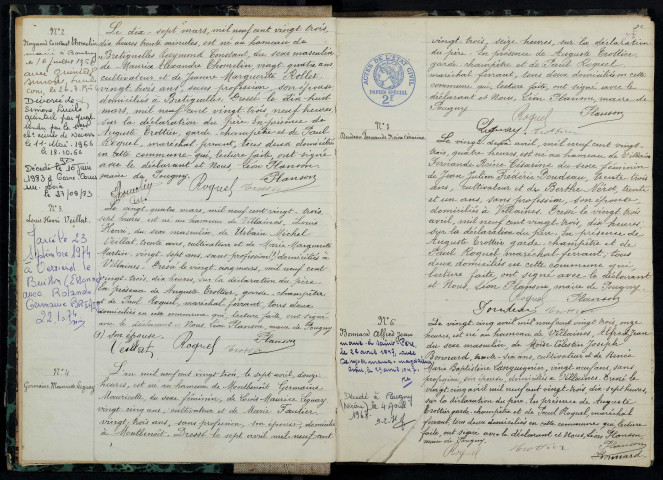 N° 2
Raymond Constant Thomelin
marié à
le 16 juillet 1956
avec
Divorcé de
11 Mai 1966
le 18.10.66
Décédé le 16 juin
1993 à Cours
sur Loire
le 23/09/93
Le dix-sept mars, mil neuf cent vingt trois,
dix heures trente minutes, est né au hameau de
Bretignelles Raymond Constant, du sexe masculin
de Maurice Alexandre Thomelin vingt quatre ans
cultivateur et de Jeanne Marguerite Rollet
vingt trois ans, sans profession, son épouse
domiciliés à Bretignelles. Dressé le dix huit
mars, mil neuf cent vingt trois neuf heures
sur la déclaration du père. En présence de
Auguste Trottier, garde champêtre et de Paul
Roguel, maréchal ferrant, tous deux domiciliés
en cette commune qui, lecture faite, ont signé
avec le déclarant et Nous, Léon Planson
maire de Pougny.
Roguel Trottier Planson
N° 3
Louis Henri Veillat.
Marié le 23
Septembre 1974
à
avec Rolande
Germaine
22.10.74
Le vingt quatre mars, mil neuf cent vingt trois
sept heures, est né au hameau de Villaines, Louis
Henri, du sexe masculin, de Urbain Michel
Veillat, trente ans, cultivateur et de Marie Marguerite
Martin, vingt sept ans, sans profession (1) domiciliés à
Villaines. Dressé le vingt cinq mars, mil neuf cent
vingt trois, dix heures, sur la déclaration du père. En
la présence de Auguste Trottier, garde champêtre
et de Paul Roguel, maréchal ferrant, tous deux
domiciliés en cette commune qui, lecture faite, ont signé
avec le déclarant et Nous, Léon Planson, maire de Pougny
(1) son épouse.
Veillat Roguel Trottier Planson
N° 4
Germaine Mauricette Leguay
L'an mil neuf cent vingt trois, le sept avril, douze
heures, est née au hameau de Montbenoit Germaine
Mauricette du sexe féminin, de Louis Maurice Leguay
vingt cinq ans, cultivateur et de Marie Taulier
vingt trois ans, sans profession, son épouse, domiciliés
à Montbenoit. Dressé le sept avril mil neuf cent
vingt trois, seize heures, sur la déclaration
du père. En présence de Auguste Trottier
garde champêtre et de Paul Roguel,
maréchal ferrant, tous deux domiciliés en cette
commune qui, lecture faite, ont signé avec le
déclarant et Nous, Léon Planson, maire de
Pougny.
Roguel Planson
Leguay Trottier
ACTES DE L'ETAT CIVIL
PAPIER SPECIAL
2F
N° 5
Fernande Marie Césarine
Le vingt deux avril, mil neuf cent vingt
trois, quatre heures est née au hameau de Villaines
Fernande Marie Césarine du sexe féminin
de Jean Julien Frédéric, trente
ans, cultivateur et de Berthe, trente
et un ans, sans profession, son épouse
domiciliés à Villaines. Dressé le vingt trois
avril, mil neuf cent vingt trois, dix heures
sur la déclaration du père. En présence de
Auguste Trottier garde champêtre et de
Paul Roguel, maréchal ferrant, tous
deux domiciliés en cette commune qui,
lecture faite, ont signé avec le déclarant
et Nous, Léon Planson, maire de Pougny
Roguel Planson
Trottier
N° 6
Bonnard Alfred Jean
marié à Saint Père
le 26 avril 1947, avec
le 29 avril 1947.
Décédé à Pougny
(Nièvre) le 4 Août
1967.
Le vingt cinq avril, mil neuf cent vingt trois, onze
heures, est né au hameau de Villaines, Alfred Jean
du sexe masculin de Moïse Célestin Joseph
Bonnard, trente-six ans, cultivateur et de Renée
Marie Baptistine, vingt neuf ans, sans
profession, son épouse, domiciliés à Villaines. Dressé le
vingt cinq avril mil neuf cent vingt trois dix sept heures,
sur la déclaration du père, en présence de Auguste
Trottier garde champêtre et de Paul Roguel, maréchal
ferrant, tous deux domiciliés en cette commune qui, lecture
faite, ont signé avec le déclarant et Nous, Léon Planson
maire de Pougny.
Roguel Trottier Planson
Bonnard